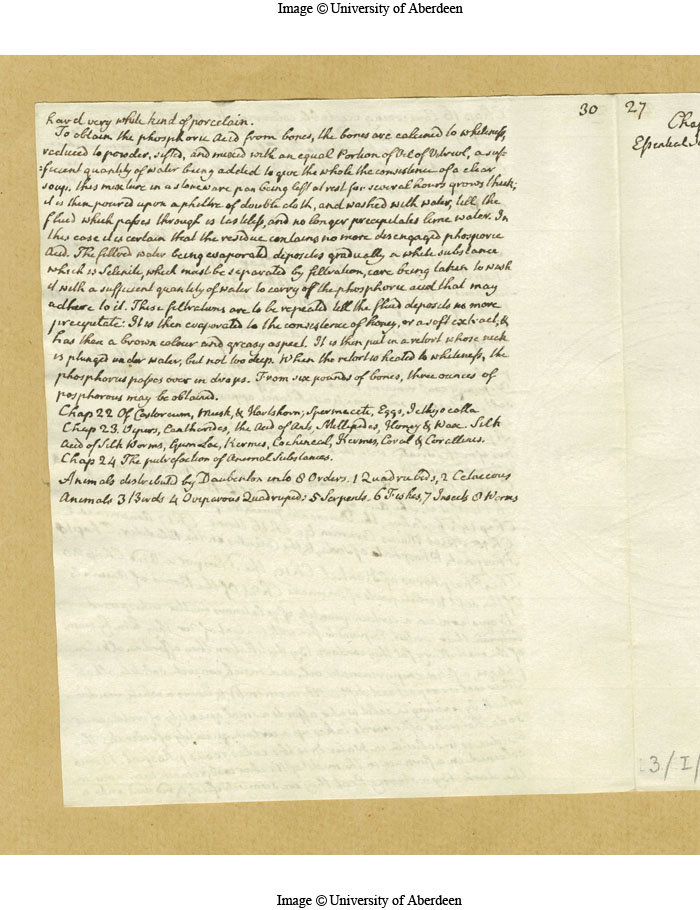 Image © University of Aberdeen
30
27
hard very white kind of porcelain.
To obtain the phosphoric Acid from bones, the bones are calcined to whiteness,
reduced to powder, sifted, and mixed with an equal Portion of Oil of Vitriol, a suf-
ficient quantity of water being added to give the whole the consistence of a clear
soup. this mixture in a stoneware pan being left at rest for several hours grows thick;
it is then poured upon a philtre of double cloth, and washed with water, till the
fluid which passes through is tasteless, and no longer precipitates lime water. In
this case it is certain that the residue contains no more disengaged phosporic
Acid. The filtred water being evaporated deposites gradually a white substance
which is Selenite, which must be separated by filtration, care being taken to wash
it with a sufficient quantity of water to carry off the phosphoric acid that may
adhere to it. These filtrations are to be repeated till the fluid deposits no more
precipitate. It is then evaporated to the consistence of honey, or a soft extract, &
has then a brown colour and greasy aspect. It is then put in a retort whose neck
is plunged under water, but not too deep. When the retort is heated to whiteness, the
phosphorus passes over in drops. From six pounds of bones, three ounces of
posphorous may be obtained.
Chap 22 Of Castoreum, Musk, & Hartshorn, Spermaceti, Eggs, Icthyocolla
Chap 23. Vipers, Cantharides, the Acid of Ants, Millepedes, Honey & Wax. Silk
Acid of Silk Worms, Gum Lac, Kermes, Cochineal, Kermes, Coral & Corallines.
Chap 24 The putrefaction of Animal Substances.
Animals distributed by Daubenton into 8 Orders. 1 Quadrupeds, 2 Cetaceous
Animals 3 Birds 4 Oviparous Quadrupeds 5 Serpents. 6 Fishes, 7 Insects 8 Worms
Chap
Essential
3/I/
Image © University of Aberdeen